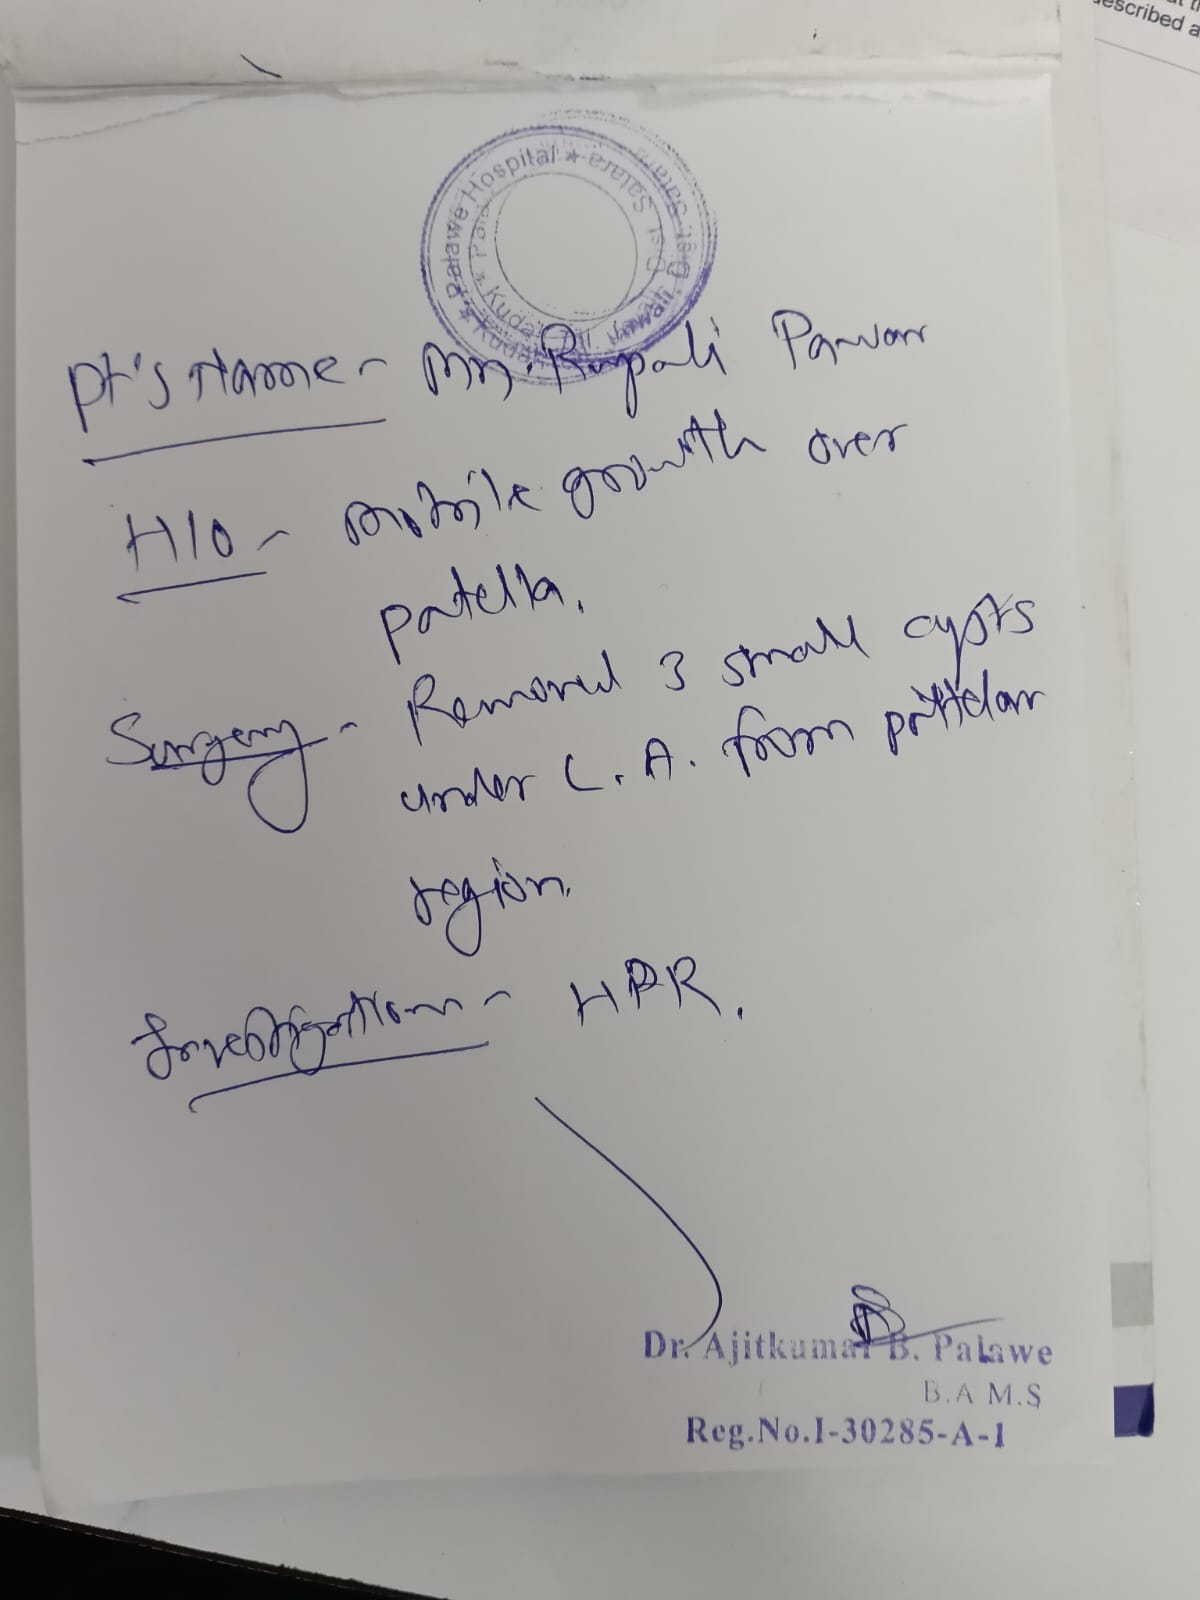 escribed a
Palawe Hospital * Dist. Satara
* Kudal, Tal. Jawali,
Pt's Name - Mrs. Rupali Pawar
H/O - mobile growth over
patella.
Surgery - Removed 3 small cysts
under L.A. from pattelar
region.
Investigation - HPR.
Dr. Ajitkumar B. Palawe
B.A M.S
Reg.No.I-30285-A-1